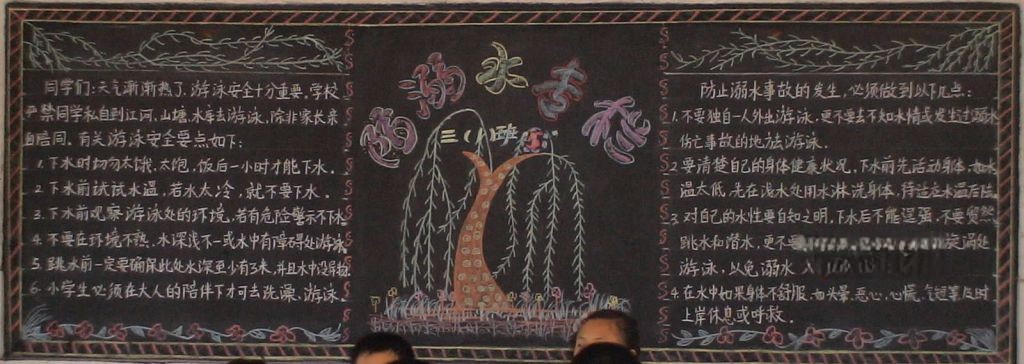 同学们:天气渐渐热了,游泳安全十分重要,学校
严禁同学私自到江河、山塘、水库去游泳,除非家长亲
自陪同。有关游泳安全要点如下:
1.下水时切勿太饿、太饱,饭后一小时才能下水。
2.下水前试试水温,若水太冷,就不要下水。
3.下水前观察游泳处的环境,若有危险警示不下水
4.不要在环境不熟、水深浅不一或水中有障碍处游泳
5.跳水前一定要确保此处水深至少有3米,并且水中没
6.小学生必须在大人的陪伴下才可去洗澡、游泳。
防溺水
三(1)班
防止溺水事故的发生,必须做到以下几点:
1.不要独自一人外出游泳,更不要去不知水情或发生过溺水
伤亡事故的地方去游泳。
2.要清楚自己的身体健康状况,下水前先活动身体,如水
温太低,先在浅水处用水淋洗身体,待适应水温后
3.对自己的水性要自知之明,下水后不能逞强,不要贸然
跳水和潜水,更不要 漩涡处
游泳,以免溺水
4.在水中如果身体不舒服,如头晕、恶心、心慌、气短等及时
上岸休息或呼救。